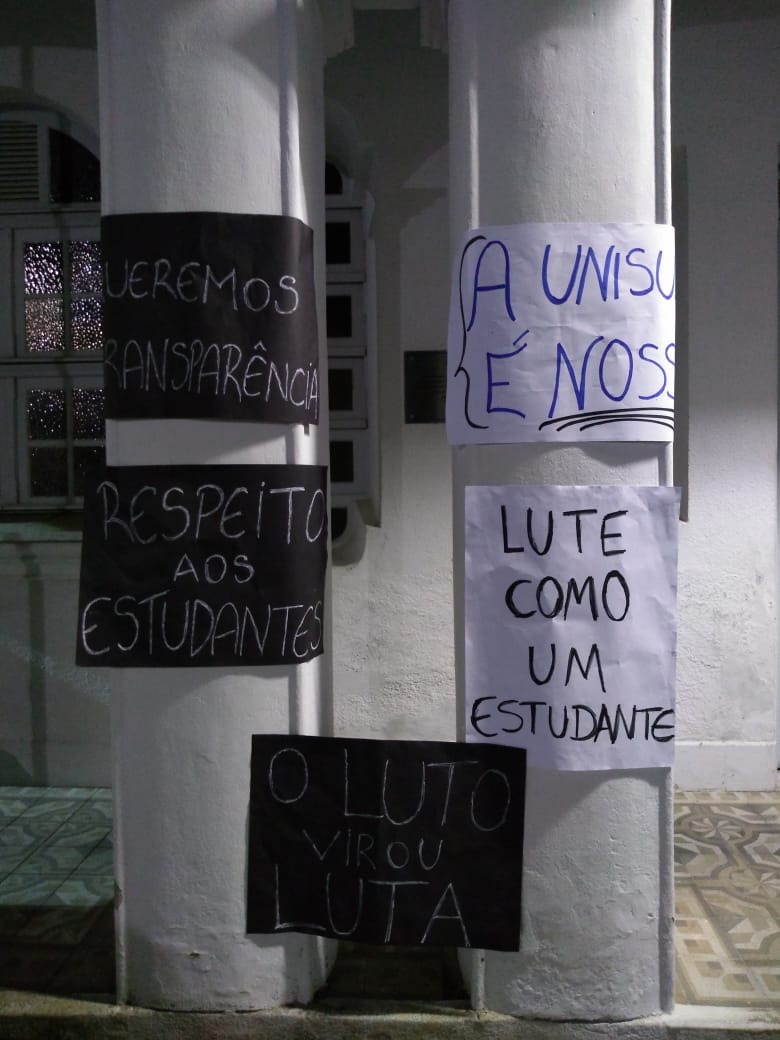 UEREMOS
RANSPARÊNCIA
RESPEITO
AOS
ESTUDANTES
A UNISU
É NOSS
LUTE
COMO
UM
ESTUDANTE
O LUTO
VIROU
LUTA